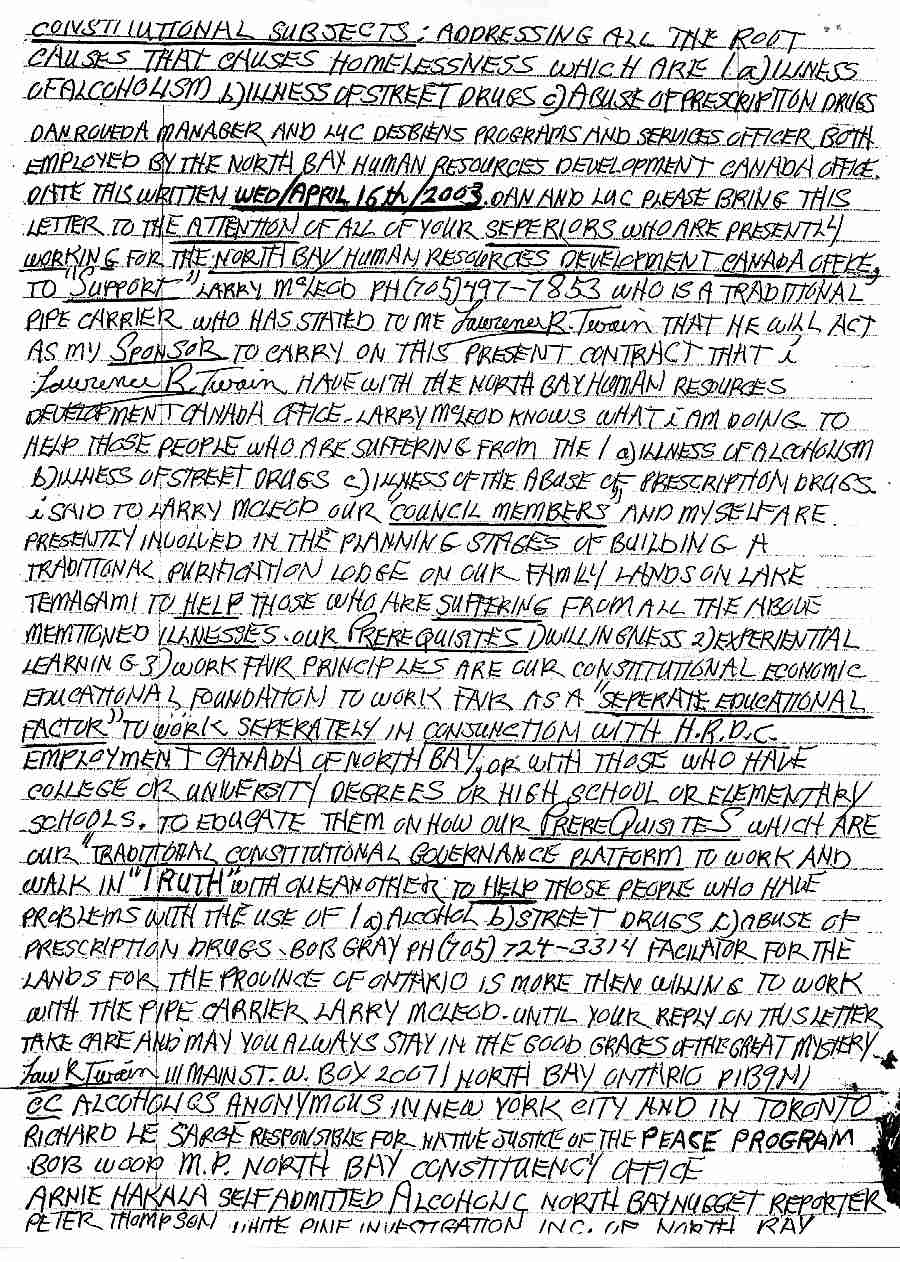 CONSTITUTIONAL SUBJECTS: ADDRESSING ALL THE ROOT
CAUSES THAT CAUSES HOMELESSNESS WHICH ARE 1 a) ILLNESS
OF ALCOHOLISM b) ILLNESS OF STREET DRUGS c) ABUSE OF PRESCRIPTION DRUGS
DAN ROVEDA MANAGER AND LUC DESBIENS PROGRAMS AND SERVICES OFFICER BOTH
EMPLOYED BY THE NORTH BAY HUMAN RESOURCES DEVELOPMENT CANADA OFFICE.
DATE THIS WRITTEM WED/APRIL 16th/2003. DAN AND LUC PLEASE BRING THIS
LETTER TO THE ATTENTION OF ALL OF YOUR SEPERIORS WHO ARE PRESENTLY
WORKING FOR THE NORTH BAY HUMAN RESOURCES DEVELOPMENT CANADA OFFICE,
TO "SUPPORT" LARRY McLEOD PH (705) 497-7853 WHO IS A TRADITIONAL
PIPE CARRIER WHO HAS STATED TO ME Lawrence R. Twain THAT HE WILL ACT
AS MY SPONSOR TO CARRY ON THIS PRESENT CONTRACT THAT i
Lawrence R. Twain HAVE WITH THE NORTH BAY HUMAN RESOURCES
DEVELOPMENT CANADA OFFICE. LARRY McLEOD KNOWS WHAT i AM DOING TO
HELP THOSE PEOPLE WHO ARE SUFFERING FROM THE 1 a) ILLNESS OF ALCOHOLISM
b) ILLNESS OF STREET DRUGS c) ILLNESS OF THE ABUSE OF PRESCRIPTION DRUGS.
i SAID TO LARRY MCLEOD OUR "COUNCIL MEMBERS" AND MYSELF ARE
PRESENTLY INVOLVED IN THE PLANNING STAGES OF BUILDING A
TRADITIONAL PURIFICATION LODGE ON OUR FAMILY LANDS ON LAKE
TEMAGAMI TO HELP THOSE WHO ARE SUFFERING FROM ALL THE ABOVE
MEMTIONED ILLNESSES. OUR PREREQUISITES 1) WILLINGNESS 2) EXPERIENTIAL
LEARNING 3) WORK FAIR PRINCIPLES ARE OUR CONSTITUTIONAL ECONOMIC
EDUCATIONAL FOUNDATION TO WORK FAIR AS A "SEPERATE EDUCATIONAL
FACTOR" TO WORK SEPERATELY IN CONJUNCTION WITH H.R.D.C.
EMPLOYMENT CANADA OF NORTH BAY, OR WITH THOSE WHO HAVE
COLLEGE OR UNIVERSITY DEGREES OR HIGH SCHOOL OR ELEMENTARY
SCHOOLS. TO EDUCATE THEM ON HOW OUR PREREQUISITES WHICH ARE
OUR "TRADITIONAL CONSTITUTIONAL GOVERNANCE PLATFORM TO WORK AND
WALK IN "TRUTH" WITH ONE ANOTHER TO HELP THOSE PEOPLE WHO HAVE
PROBLEMS WITH THE USE OF 1 a) ALCOHOL b) STREET DRUGS c) ABUSE OF
PRESCRIPTION DRUGS. BOB GRAY PH (705) 724-3314 FACILATOR FOR THE
LANDS FOR THE PROVINCE OF ONTARIO IS MORE THEN WILLING TO WORK
WITH THE PIPE CARRIER LARRY MCLEOD. UNTIL YOUR REPLY ON THIS LETTER
TAKE CARE AND MAY YOU ALWAYS STAY IN THE GOOD GRACES OF THE GREAT MYSTERY
Law R Twain 111 MAIN ST. W. BOX 20071 NORTH BAY ONTARIO P1B9N1
CC ALCOHOLICS ANONYMOUS IN NEW YORK CITY AND IN TORONTO
RICHARD LE SARGE RESPONSIBLE FOR NATIVE JUSTICE OF THE PEACE PROGRAM
BOB WOOD M.P. NORTH BAY CONSTITUENCY OFFICE
ARNIE HAKALA SELF ADMITTED ALCOHOLIC NORTH BAY NUGGET REPORTER
PETER THOMPSON WHITE PINE INVESTIGATION INC. OF NORTH BAY